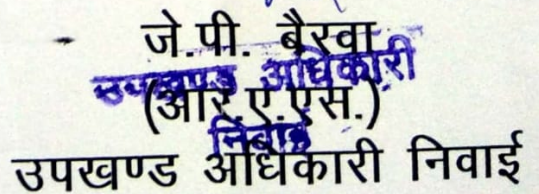 जे.पी. बैरवा
उपखण्ड अधिकारी
(आर.ए.एस.)
निवाई
उपखण्ड अधिकारी निवाई